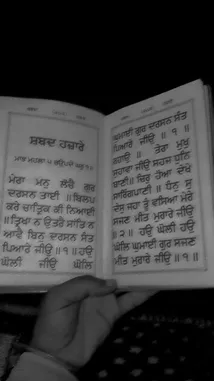 ਸ਼ਬਦ ਹਜ਼ਾਰੇ
ਮਾਝ ਮਹਲਾ ੫ ਚਉਪਦੇ ਘਰੁ ੧ ॥
ਮੇਰਾ ਮਨੁ ਲੋਚੈ ਗੁਰ
ਦਰਸਨ ਤਾਈ ॥ ਬਿਲਪ
ਕਰੇ ਚਾਤ੍ਰਿਕ ਕੀ ਨਿਆਈ
॥ ਤ੍ਰਿਖਾ ਨ ਉਤਰੈ ਸਾਂਤਿ ਨ
ਆਵੈ ਬਿਨੁ ਦਰਸਨ ਸੰਤ
ਪਿਆਰੇ ਜੀਉ ॥ ੧ ॥ ਹਉ
ਘੋਲੀ ਜੀਉ ਘੋਲਿ
ਘੁਮਾਈ ਗੁਰ ਦਰਸਨ ਸੰਤ
ਪਿਆਰੇ ਜੀਉ ॥ ੧ ॥
ਰਹਾਉ ॥ ਤੇਰਾ ਮੁਖੁ
ਸੁਹਾਵਾ ਜੀਉ ਸਹਜ ਧੁਨਿ
ਬਾਣੀ ॥ ਚਿਰੁ ਹੋਆ ਦੇਖੇ
ਸਾਰਿੰਗਪਾਣੀ ॥ ਧੰਨੁ ਸੁ
ਦੇਸੁ ਜਹਾ ਤੂੰ ਵਸਿਆ ਮੇਰੇ
ਸਜਣ ਮੀਤ ਮੁਰਾਰੇ ਜੀਉ
॥ ੨ ॥ ਹਉ ਘੋਲੀ ਹਉ
ਘੋਲਿ ਘੁਮਾਈ ਗੁਰ ਸਜਣ
ਮੀਤ ਮੁਰਾਰੇ ਜੀਉ ॥ ੧ ॥